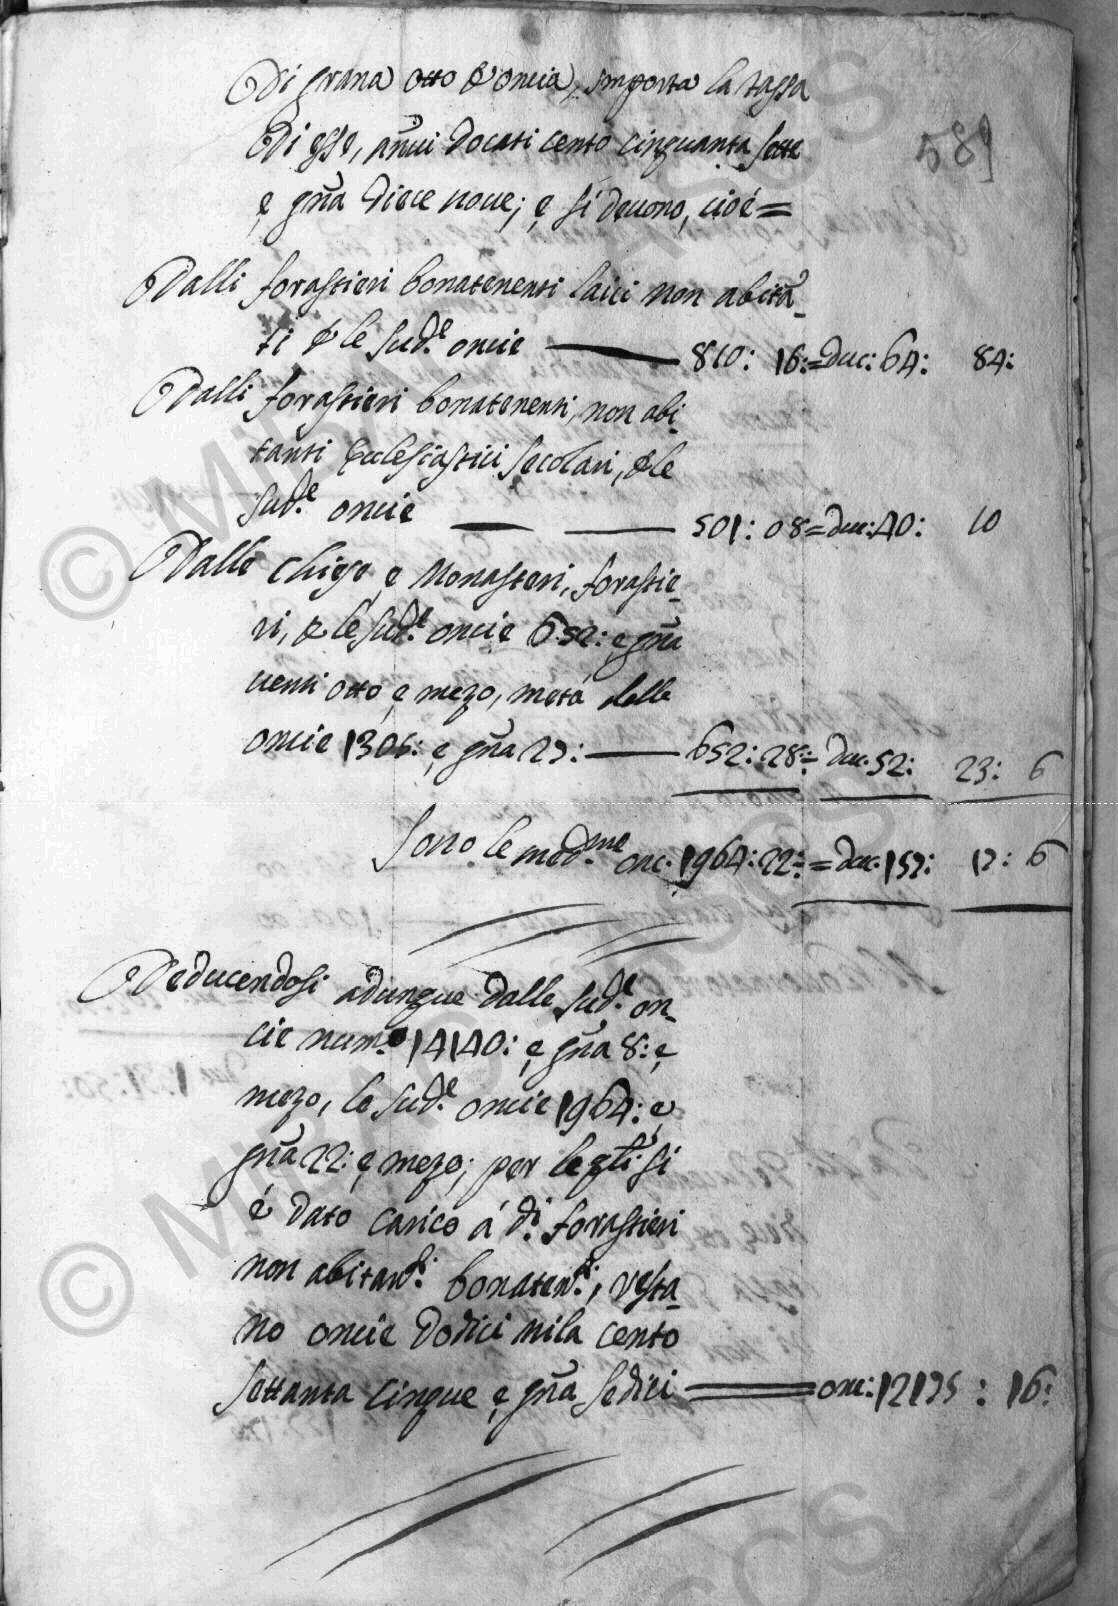 Di grana otto l'oncia, importa la tassa
589
Di esse, annui Docati cento cinquanta sette
e gna diece nove; e si devono, cioé=
Dalli forastieri bonatenenti laici non abitã-
ti p le sud.e oncie — 810: 16:=duc: 64: 84:
Dalli forastieri bonatenenti, non abi-
tanti Ecclesiastici secolari, p le
sud.e oncie — — 501: 08=duc:40: 10
Dalle Chiese, e Monasteri, forastie-
ri, p le sud.e oncie 652: e gna
venti otto e mezo, metá delle
oncie 1305: e gna 27: — 652: 28:= duc. 52: 23: 6
Sono le med.me onc. 1964: 22:= duc. 157: 17: 6
Deducendosi adunque dalle sud.e on-
cie num.o 14140: e gna 8: e
mezo, le sud.e oncie 1964: e
gna 22: e mezo; per le qti si
é dato carico á d.i forastieri
non abitan.ti bonaten.ti, resta-
no oncie Dodici mila cento
settanta cinque e gna sedici == onc: 12175: 16:
© MIBAC - ASCS
© MIBAC - ASCS
ASCS